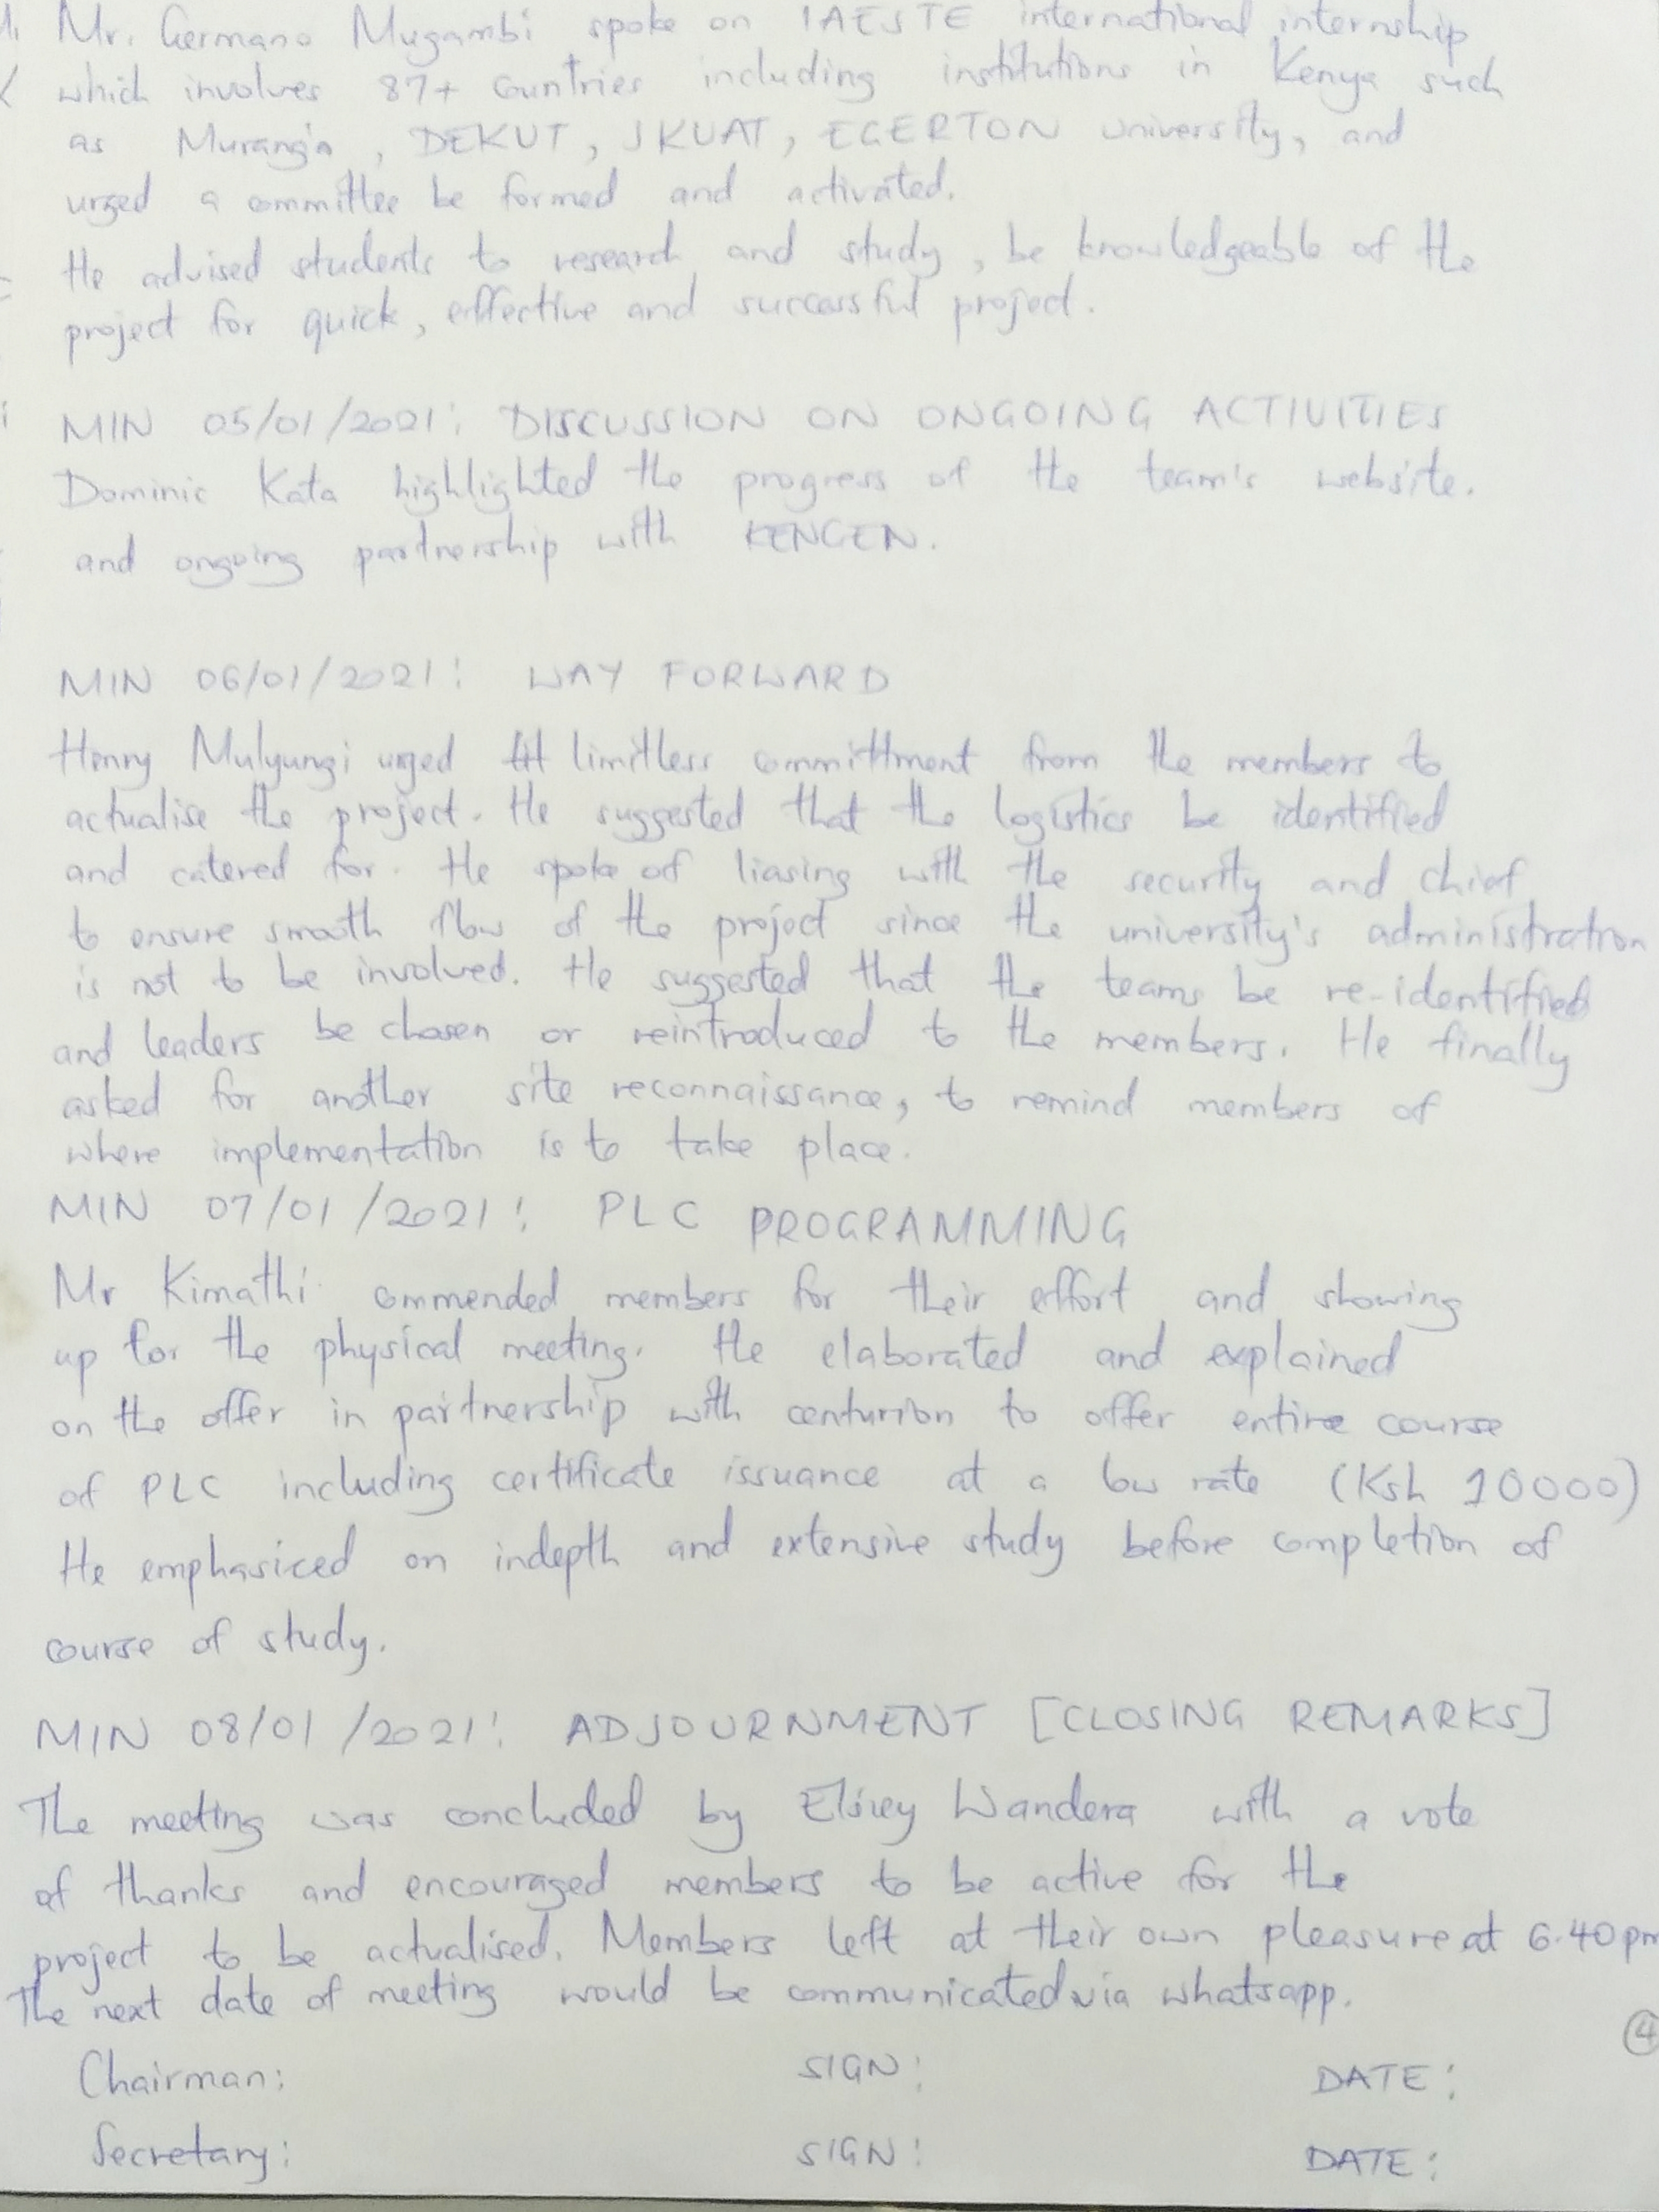 Mr. Germano Mugambi spoke on IAESTE international internship
which involves 87+ countries including institutions in Kenya such
as Muranga, DEKUT, JKUAT, EGERTON University, and
urged a committee be formed and activated.
He advised students to research and study, be knowledgeable of the
project for quick, effective and successful project.
MIN 05/01/2021: DISCUSSION ON ONGOING ACTIVITIES
Dominic Kata highlighted the progress of the team's website.
and ongoing partnership with KENGEN.
MIN 06/01/2021: WAY FORWARD
Henry Mulyungi urged limitless committment from the members to
actualise the project. He suggested that the logistics be identified
and catered for. He spoke of liasing with the security and chief
to ensure smooth flow of the project since the university's administration
is not to be involved. He suggested that the teams be re-identified
and leaders be chosen or reintroduced to the members. He finally
asked for another site reconnaissance, to remind members of
where implementation is to take place.
MIN 07/01/2021: PLC PROGRAMMING
Mr Kimathi commended members for their effort and showing
up for the physical meeting. He elaborated and explained
on the offer in partnership with centurion to offer entire course
of PLC including certificate issuance at a low rate (Ksh 10000)
He emphasiced on indepth and extensive study before completion of
course of study.
MIN 08/01/2021: ADJOURNMENT [CLOSING REMARKS]
The meeting was concluded by Wandera with a vote
of thanks and encouraged members to be active for the
project to be actualised. Members left at their own pleasure at 6.40pm
The next date of meeting would be communicated via whatsapp.
4
Chairman: SIGN: DATE:
Secretary: SIGN: DATE: